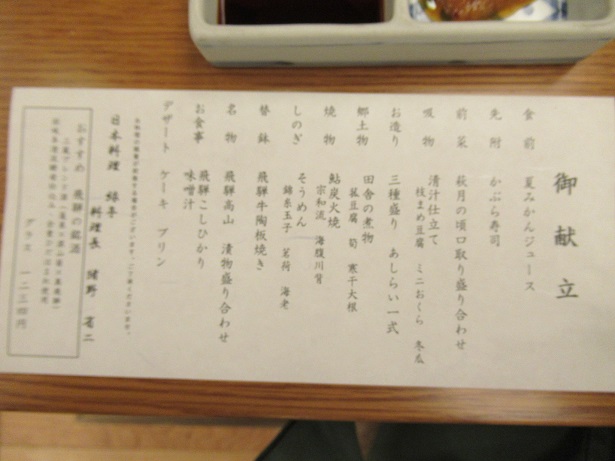 御献立
食前 夏みかんジュース
先附 かぶら寿司
前菜 萩月の頃口取り盛り合わせ
吸物 清汁仕立て
枝まめ豆腐 ミニおくら 冬瓜
お造り 三種盛り あしらい一式
郷土物 田舎の煮物
豆腐 筍 寒干大根
焼物 鮎炭火焼
宗和流
しのぎ そうめん
錦糸玉子 茗荷 海老
替鉢 飛騨牛陶板焼き
名物 飛騨高山 漬物盛り合わせ
お食事 飛騨こしひかり
味噌汁
デザート ケーキ プリン
日本料理 緑亭
料理長
おすすめ 飛騨の銘酒
グラス 一二三四円